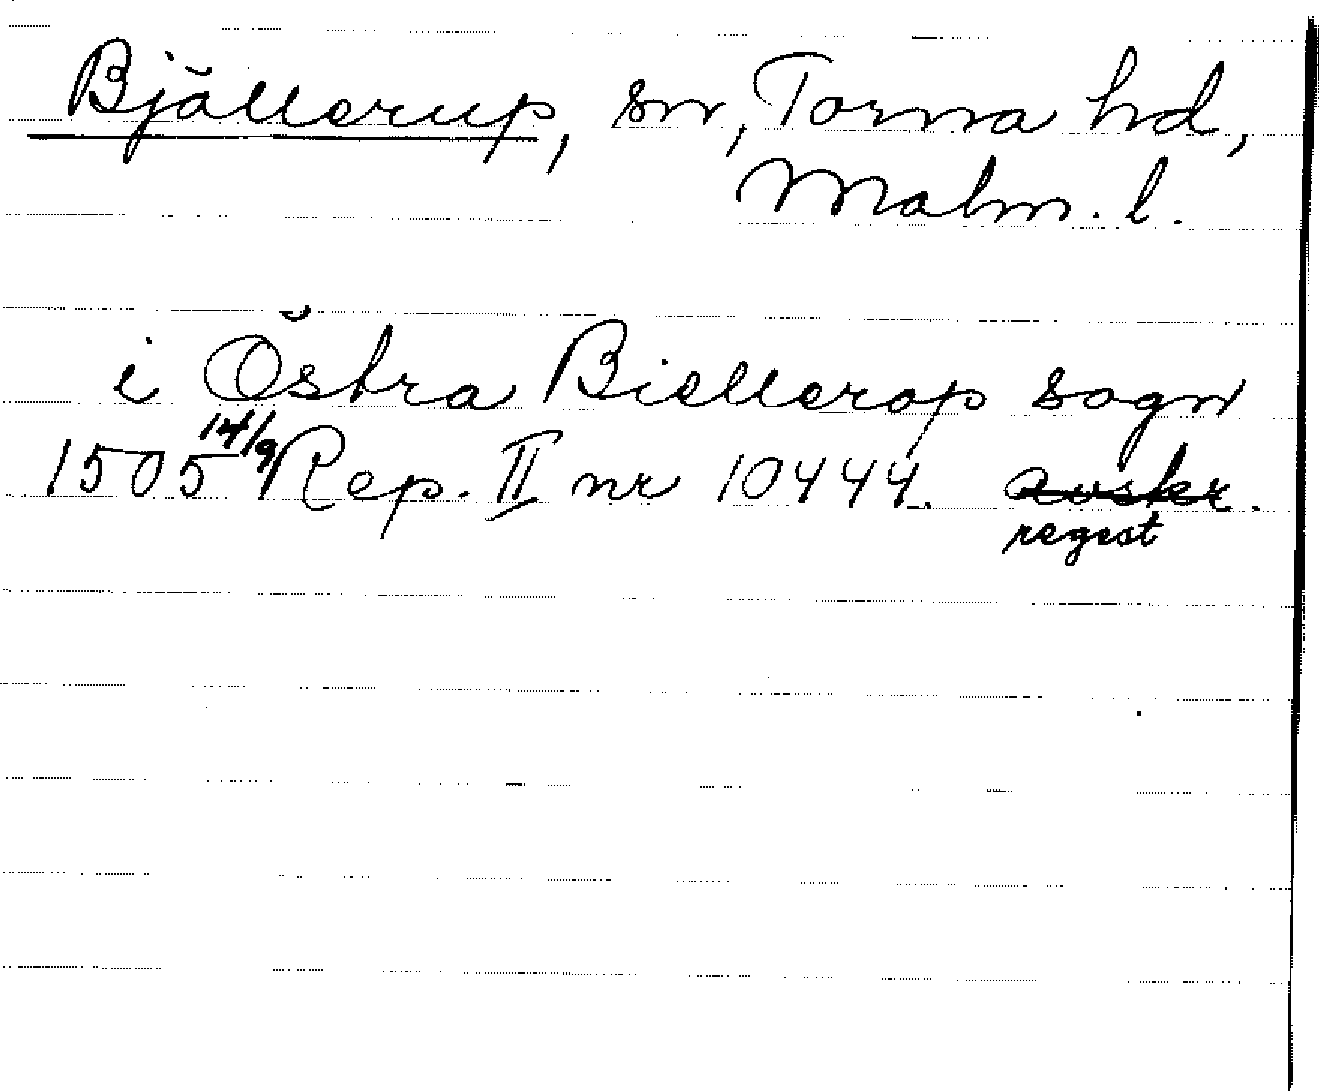 Bjällerup, sn, Torna hd,
Malm. l.
i Östra Biellerop sogn
1505 14/9 Rep. II nr 10444. avskr.
regest